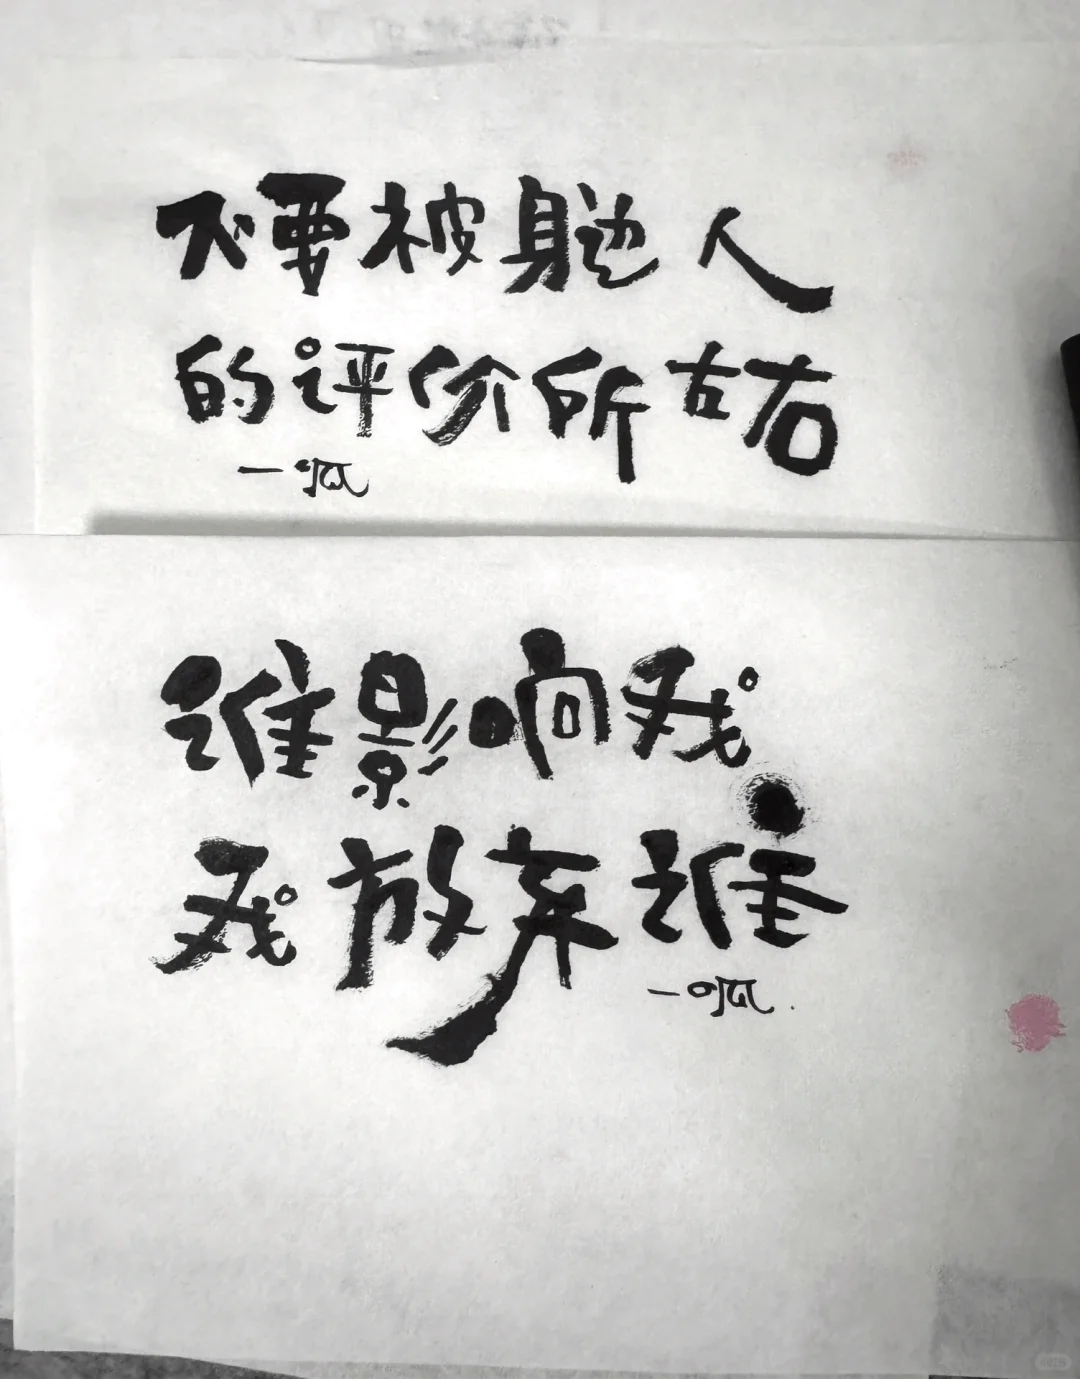 不要被身边人
的评价所左右
一呱
谁影响我
我放弃谁
一呱